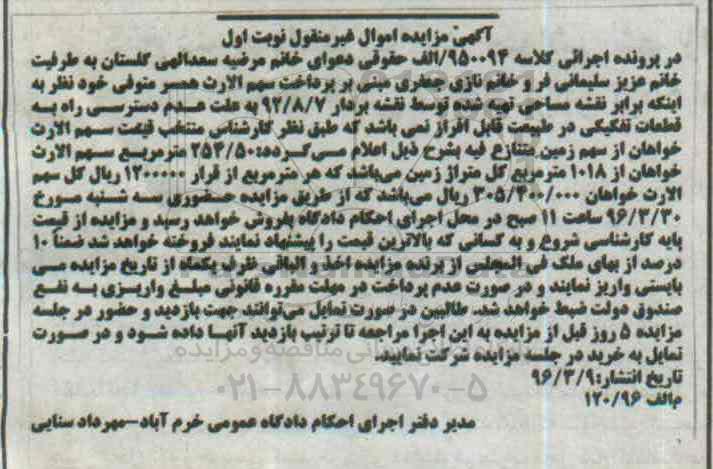 آگهی مزایده اموال غیر منقول نوبت اول
در پرونده اجرائی کلاسه ۹۵۰۰۹۴/الف حقوقی دعوای خانم مرضیه سعدالهی گلستان به طرفیت
خانم عزیز سلیمانی فر و خانم نازی جعفری مبنی بر پرداخت سهم الارث همسر متوفی خود نظر به
اینکه برابر نقشه مساحی تهیه شده توسط نقشه بردار ۹۲/۸/۷ به علت عدم دسترسی راه به
قطعات تفکیکی در طبیعت قابل افراز نمی باشد که طبق نظر کارشناس منتخب قیمت سهم الارث
خواهان از سهم زمین متنازع فیه بشرح ذیل اعلام می گردد: ۲۵۴/۵۰ مترمربع سهم الارث
خواهان از ۱۰۱۸ مترمربع کل متراژ زمین می‌باشد که هر مترمربع از قرار ۱۲۰۰۰۰۰ ریال کل سهم
الارث خواهان ۳۰۵/۴۰۰/۰۰۰ ریال می‌باشد که از طریق مزایده حضوری سه شنبه مورخ
۹۶/۳/۳۰ ساعت ۱۱ صبح در محل اجرای احکام دادگاه بفروش خواهد رسید و مزایده از قیمت
پایه کارشناسی شروع و به کسانی که بالاترین قیمت را پیشنهاد نمایند فروخته خواهد شد ضمنا ۱۰
درصد از بهای ملک فی المجلس از برنده مزایده اخذ و الباقی ظرف یکماه از تاریخ مزایده می
بایستی واریز نمایند و در صورت عدم پرداخت در مهلت مقرره قانونی مبلغ واریزی به نفع
صندوق دولت ضبط خواهد شد. طالبین در صورت تمایل می‌توانند جهت بازدید و حضور در جلسه
مزایده ۵ روز قبل از مزایده به این اجرا مراجعه تا ترتیب بازدید آنها داده شود و در صورت
تمایل به خرید در جلسه مزایده شرکت نمایید.
تاریخ انتشار: ۹۶/۳/۹
م الف ۱۲۰/۹۶
مدیر دفتر اجرای احکام دادگاه عمومی خرم آباد-مهرداد سنایی
۰۲۱-۸۸۳۴۹۶۷۰-۵